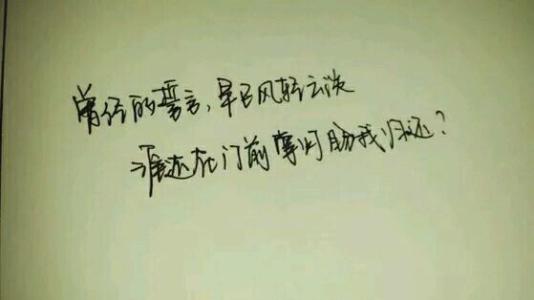 曾经的誓言,早已风轻云淡
谁还在门前掌灯盼我归还?